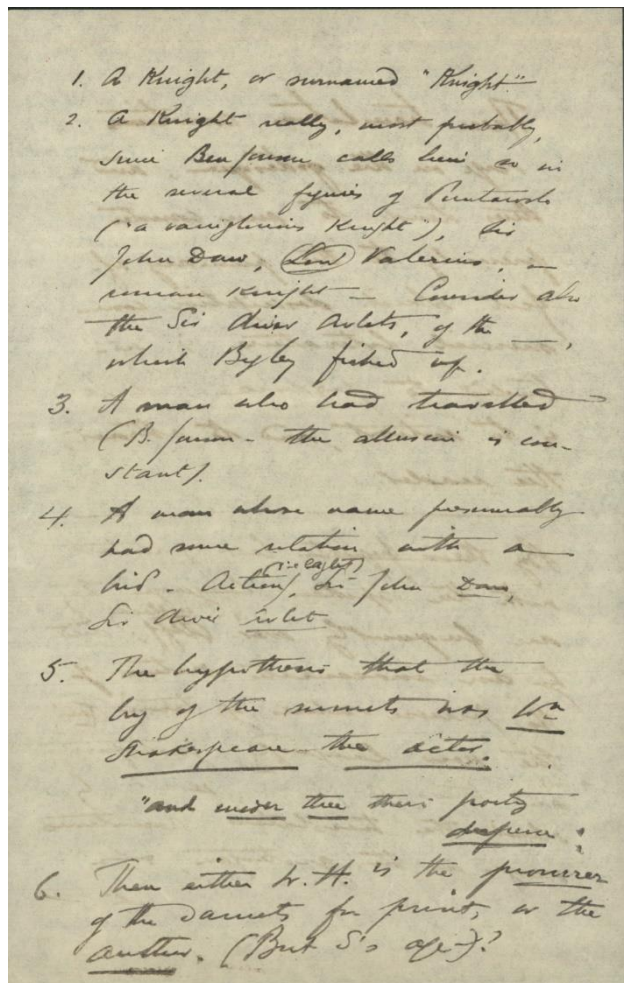 1. A Knight, or surnamed "Knight".
2. A Knight really, most probably,
since Ben Jonson calls him so in
the several figures of Puntarvolo
("a vainglorious Knight"), Sir
John Daw, Valerius, a
roman Knight — Consider also
the Sir Oliver Owlets, of the
which Bégley fished up.
3. A man who had travelled
(B. Jonson — the allusion is con-
stant).
4. A man whose name presumably
had some relation with a
bird — Aetion (i.e. eaglet), Sir John Daw,
Sir Oliver Owlet
5. The hypothesis that the
boy of the sonnets was Wm
Shakespeare the actor.
"and under thee their poesy
disperse":
6. Then either W. H. is the
of the Sonnets for print, or the
author. (But S's age)?